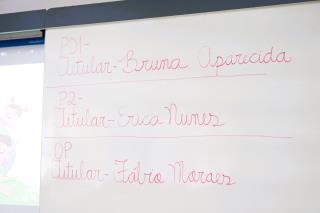 PD1-
Titular-Bruna Aparecida
P2-
Titular-Erica Nunes
OP
Titular-Fábio Moraes